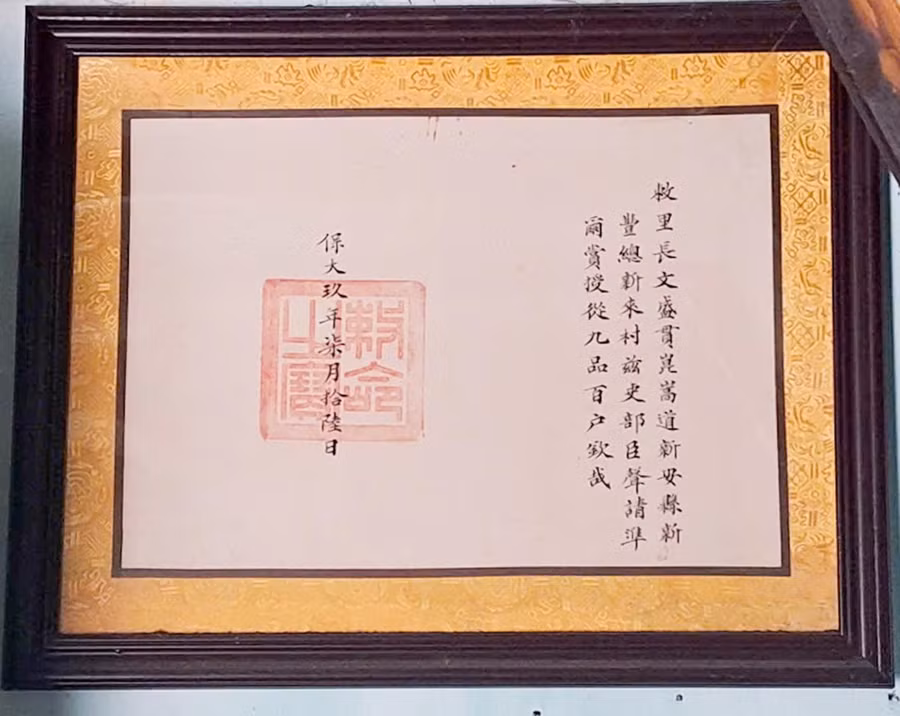 敕里長文盛貫崑嵩道新安縣新
豐總新來村茲吏部臣聲請準
爾賞授從九品百户欽哉
保大玖年柒月拾陸日
敕命
之寶